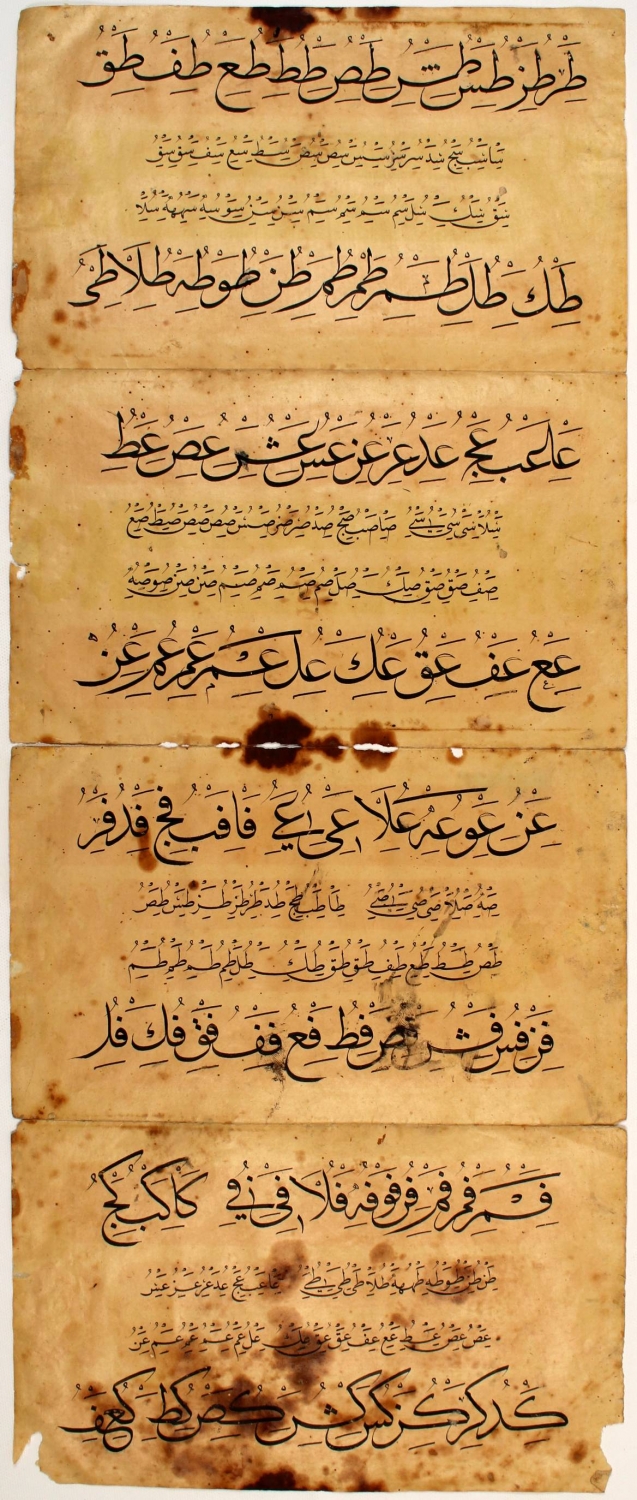 طر طز طس طش طص طط طع طف طق
سا سب سج سد سر سز سس سص سض سط سع سف سق سق
سق سك سل سم سم سم سم سن سن سو سه سهه سلا
طك طل طم طم طم طن طو طه طلا طى
عا عب عج عد عر عز عس عش عص عط
سلا سى سى سے صا صب صج صد صر صز صس صص صص صط صع
صف صق صق صك صل صم صم صم صم صن صن صو صه
عع عف عق عك عل عم عم عم عن
عن عو عه علا عى عے فا فب فج فد فر
صه صلا صى صى صے طا طب طج طد طر طز طز طس طص
طص طط طع طف طق طق طك طل طم طم طم طم
فز فس فش فص فط فع فف فق فك فل
فم فم فم فن فو فه فلا فى فے كا كب كج
طن طن طو طه طهه طلا طى طى طے عا عب عج عد عر عز عس
عص عص عط عع عف عق عق عك عل عم عم عم عم عن
كد كر كز كس كش كص كط كع كف